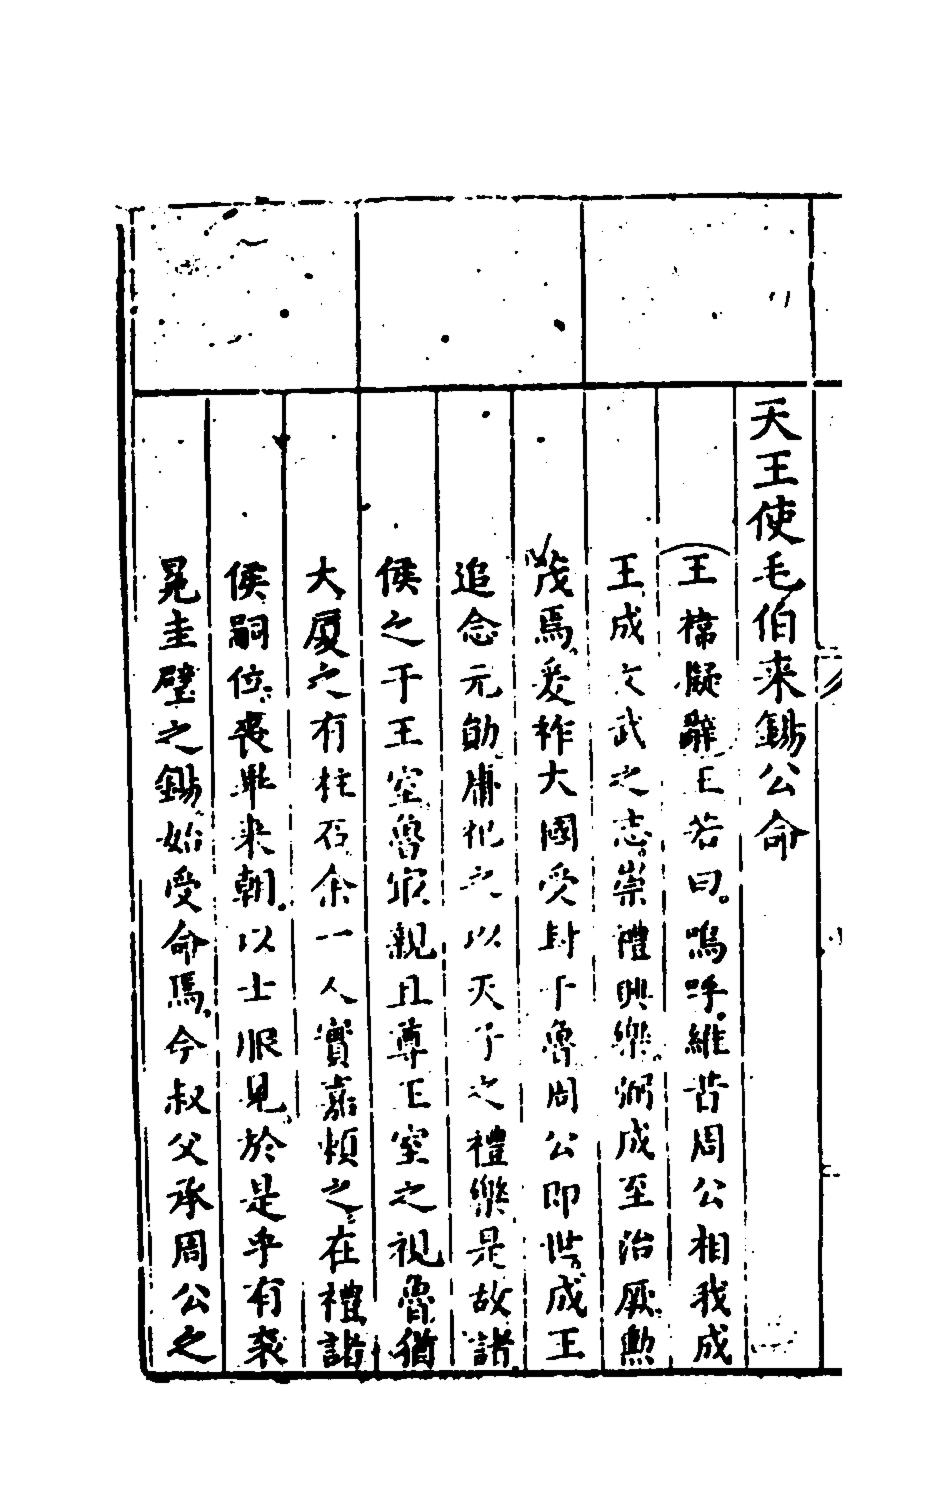 天王使毛伯来錫公命
王樵擬辭王若曰嗚呼維昔周公相我成
王成文武之志崇禮興樂溯成至治厥勲
茂焉爰祚大國受封于魯周公即世成王
追念元勛庸祀之以天子之禮樂是故諸
侯之于王室魯最親且尊王室之視魯猶
大厦之有柱石余一人實嘉頼之在禮諸
侯嗣位喪畢来朝以士服見於是乎有衮
冕圭璧之錫始受命焉今叔父承周公之